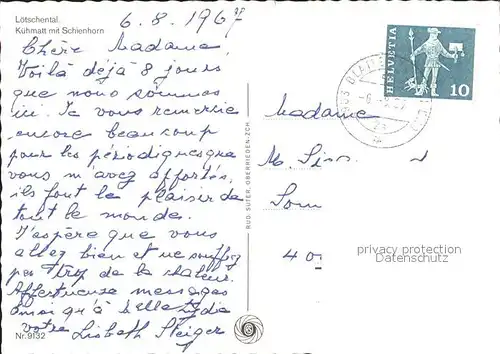 Lötschental.
Kühmatt mit Schienhorn
6.8.1967
Chère Madame,
Voilà déjà 8 jours
que nous sommes
ici. Je vous remercie
encore beaucoup
pour les périodiques que
vous m'avez apportés,
ils font le plaisir de
tout le monde.
J'espère que vous
allez bien et ne souffrez
pas trop de la chaleur.
Affectueuses messages
ainsi qu'à
votre Lisbeth Steiger
Nr. 9132
RUD. SUTER, OBERRIEDEN-ZCH
HELVETIA
10
Madame
M.
40
privacy protection
Datenschutz